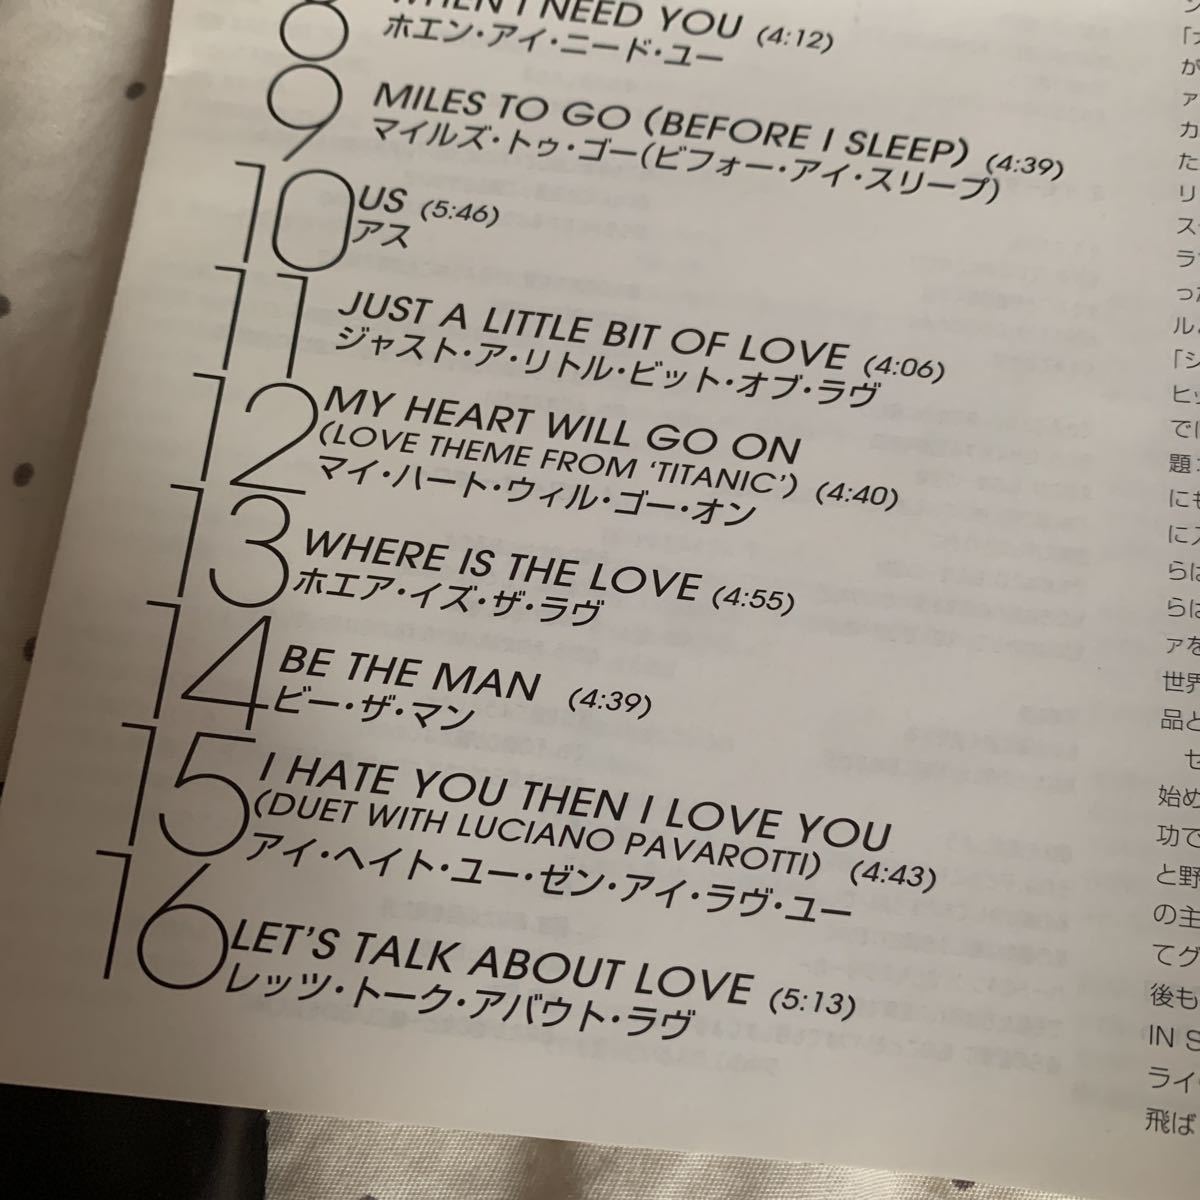 8 WHEN I NEED YOU (4:12)
ホエン・アイ・ニード・ユー
9 MILES TO GO (BEFORE I SLEEP) (4:39)
マイルズ・トゥ・ゴー(ビフォー・アイ・スリープ)
10 US (5:46)
アス
11 JUST A LITTLE BIT OF LOVE (4:06)
ジャスト・ア・リトル・ビット・オブ・ラヴ
12 MY HEART WILL GO ON
(LOVE THEME FROM 'TITANIC') (4:40)
マイ・ハート・ウィル・ゴー・オン
13 WHERE IS THE LOVE (4:55)
ホエア・イズ・ザ・ラヴ
14 BE THE MAN (4:39)
ビー・ザ・マン
15 I HATE YOU THEN I LOVE YOU
(DUET WITH LUCIANO PAVAROTTI) (4:43)
アイ・ヘイト・ユー・ゼン・アイ・ラヴ・ユー
16 LET'S TALK ABOUT LOVE (5:13)
レッツ・トーク・アバウト・ラヴ
が
ァ
カ
た
リ
ス
ラ
っ
ル
「シ
ヒッ
では
題
にも
に
らは
らは
ァを
世界
品と
セ
始め
功で
と野
の主
てグ
後も
IN S
ライ
飛ば